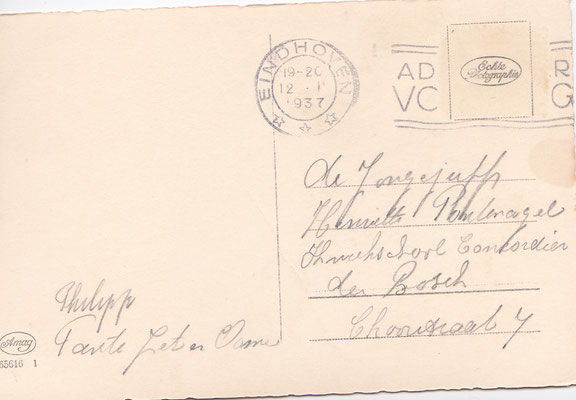 EINDHOVEN
19-20
12 . I
1937
AD R
VC G
Echte
Photographie
de Jongejuffr
Henriette
Kweekschool Concordier
den Bosch
Choorstraat 7
Philipp
Tante Jet en Oome
Amag
65616 1